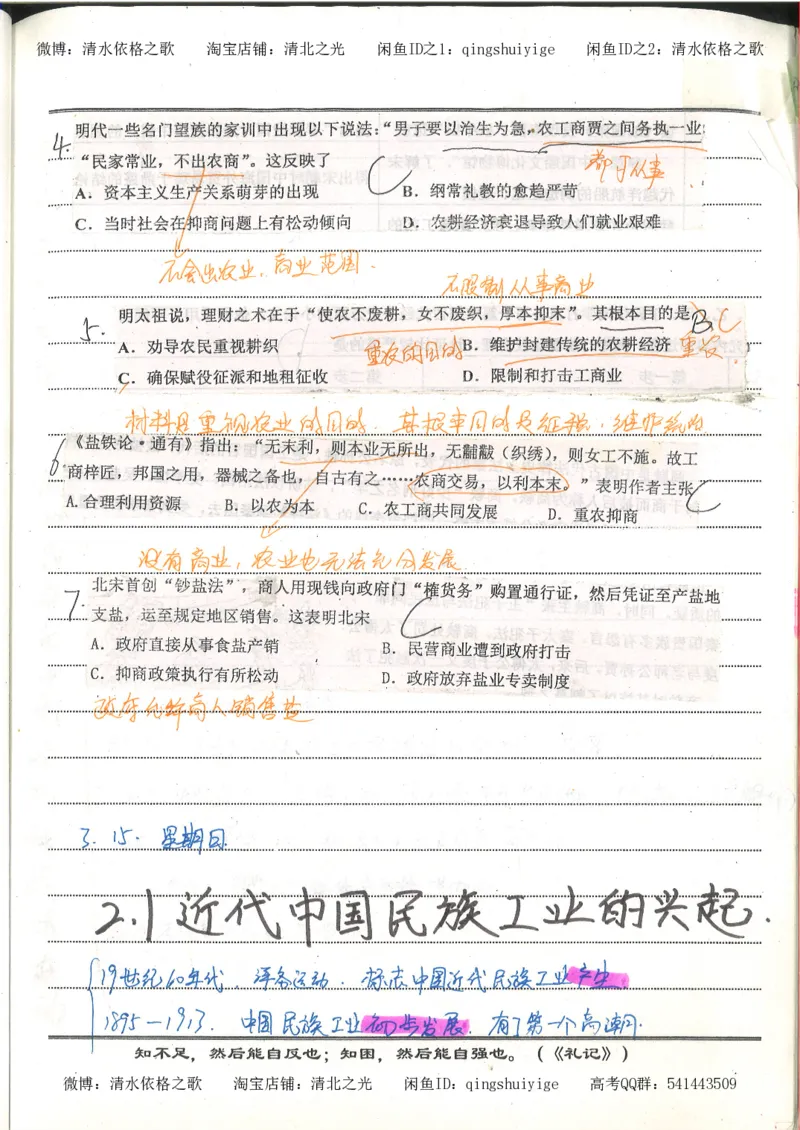 微博：清水依格之歌 淘宝店铺：清北之光 闲鱼ID之1：qingshuiyige 闲鱼ID之2：清水依格之歌
4. 明代一些名门望族的家训中出现以下说法：“男子要以治生为急，农工商贾之间务执一业
“民家常业，不出农商”。这反映了 C 都可从事
A．资本主义生产关系萌芽的出现 B．纲常礼教的愈趋严苛
C．当时社会在抑商问题上有松动倾向 D．农耕经济衰退导致人们就业艰难
不会出农业、商业范围．
不限制从事商业
5. 明太祖说，理财之术在于“使农不废耕，女不废织，厚本抑末”。其根本目的是 B C
A．劝导农民重视耕织 重农的目的 B．维护封建传统的农耕经济 重农．
C．确保赋役征派和地租征收 D．限制和打击工商业
材料是重视农业的目的．其根本目的是征税，维护统治
6 《盐铁论·通有》指出：“无末利，则本业无所出，无黼黻（织绣），则女工不施。故工
商梓匠，邦国之用，器械之备也，自古有之……农商交易，以利本末。”表明作者主张 C
A.合理利用资源 B．以农为本 C．农工商共同发展 D．重农抑商
没有商业，农业也无法充分发展．
7. 北宋首创“钞盐法”，商人用现钱向政府门“榷货务”购置通行证，然后凭证至产盐地
支盐，运至规定地区销售。这表明北宋 C
A．政府直接从事食盐产销 B．民营商业遭到政府打击
C．抑商政策执行有所松动 D．政府放弃盐业专卖制度
政府允许商人销售盐
3. 15. 星期日
2.1 近代中国民族工业的兴起．
19世纪60年代．洋务运动．标志中国近代民族工业产生．
1895—1913．中国民族工业初步发展．有了第一个高潮．
知不足，然后能自反也；知困，然后能自强也。（《礼记》）
微博：清水依格之歌 淘宝店铺：清北之光 闲鱼ID：qingshuiyige 高考QQ群：541443509